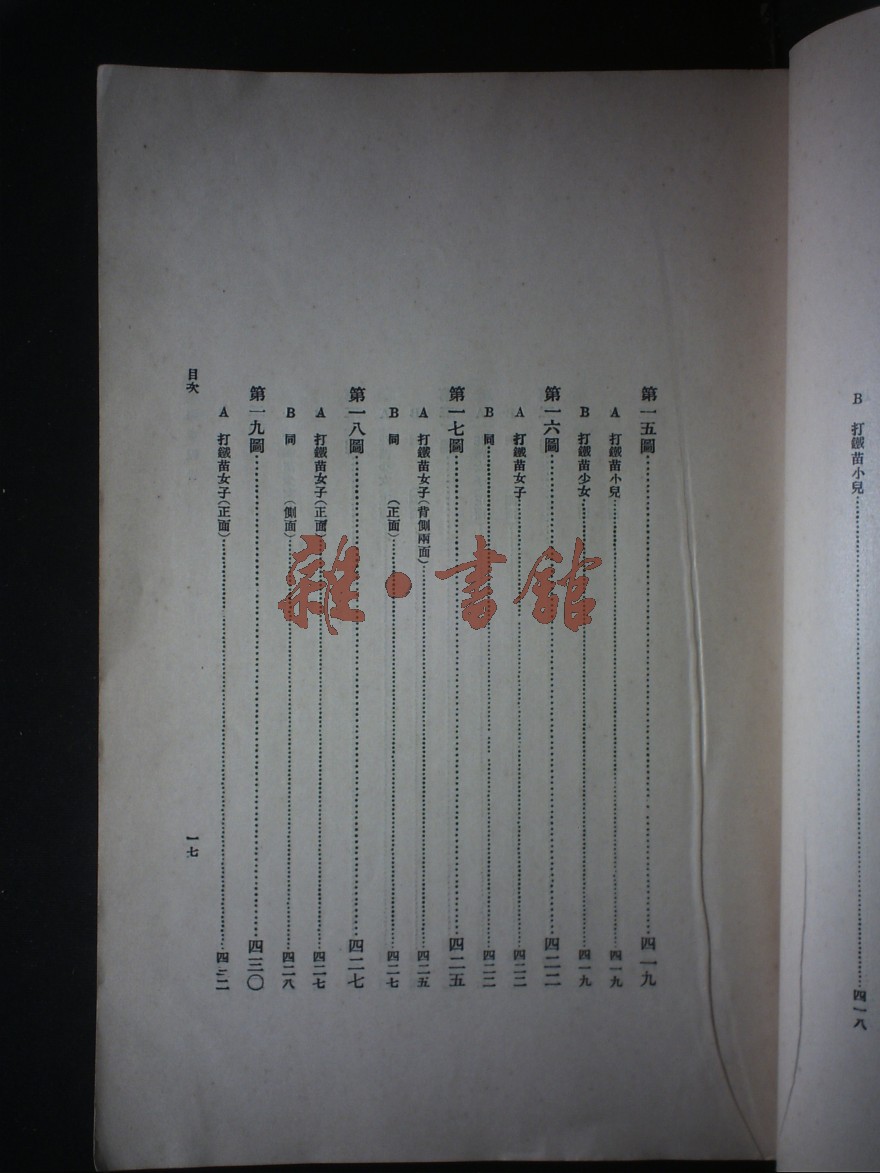 B 打鐵苗小兒……四一八
第一五圖……四一九
A 打鐵苗小兒……四一九
B 打鐵苗少女……四一九
第一六圖……四二二
A 打鐵苗女子……四二二
B 同……四二二
第一七圖……四二五
A 打鐵苗女子（背側兩面）……四二五
B 同（正面）……四二七
第一八圖……四二七
A 打鐵苗女子（正面）……四二七
B 同（側面）……四二八
第一九圖……四三〇
A 打鐵苗女子（正面）……
目次
一七
雜·書館